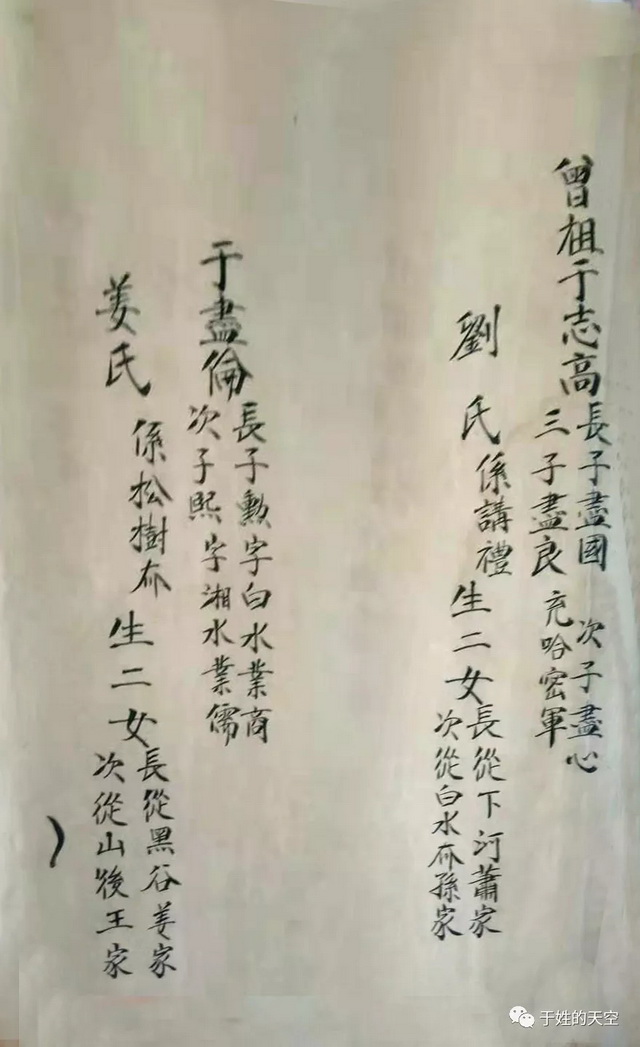 曾祖于志高
長子盡國 次子盡心
三子盡良 充哈密軍
劉氏
係講禮
生二女
長從下河蕭家
次從白水夼孫家
于盡倫
長子勲字白水業商
次子熙字湘水業儒
姜氏
係松樹夼
生二女
長從黑谷姜家
次從山後王家
于姓的天空